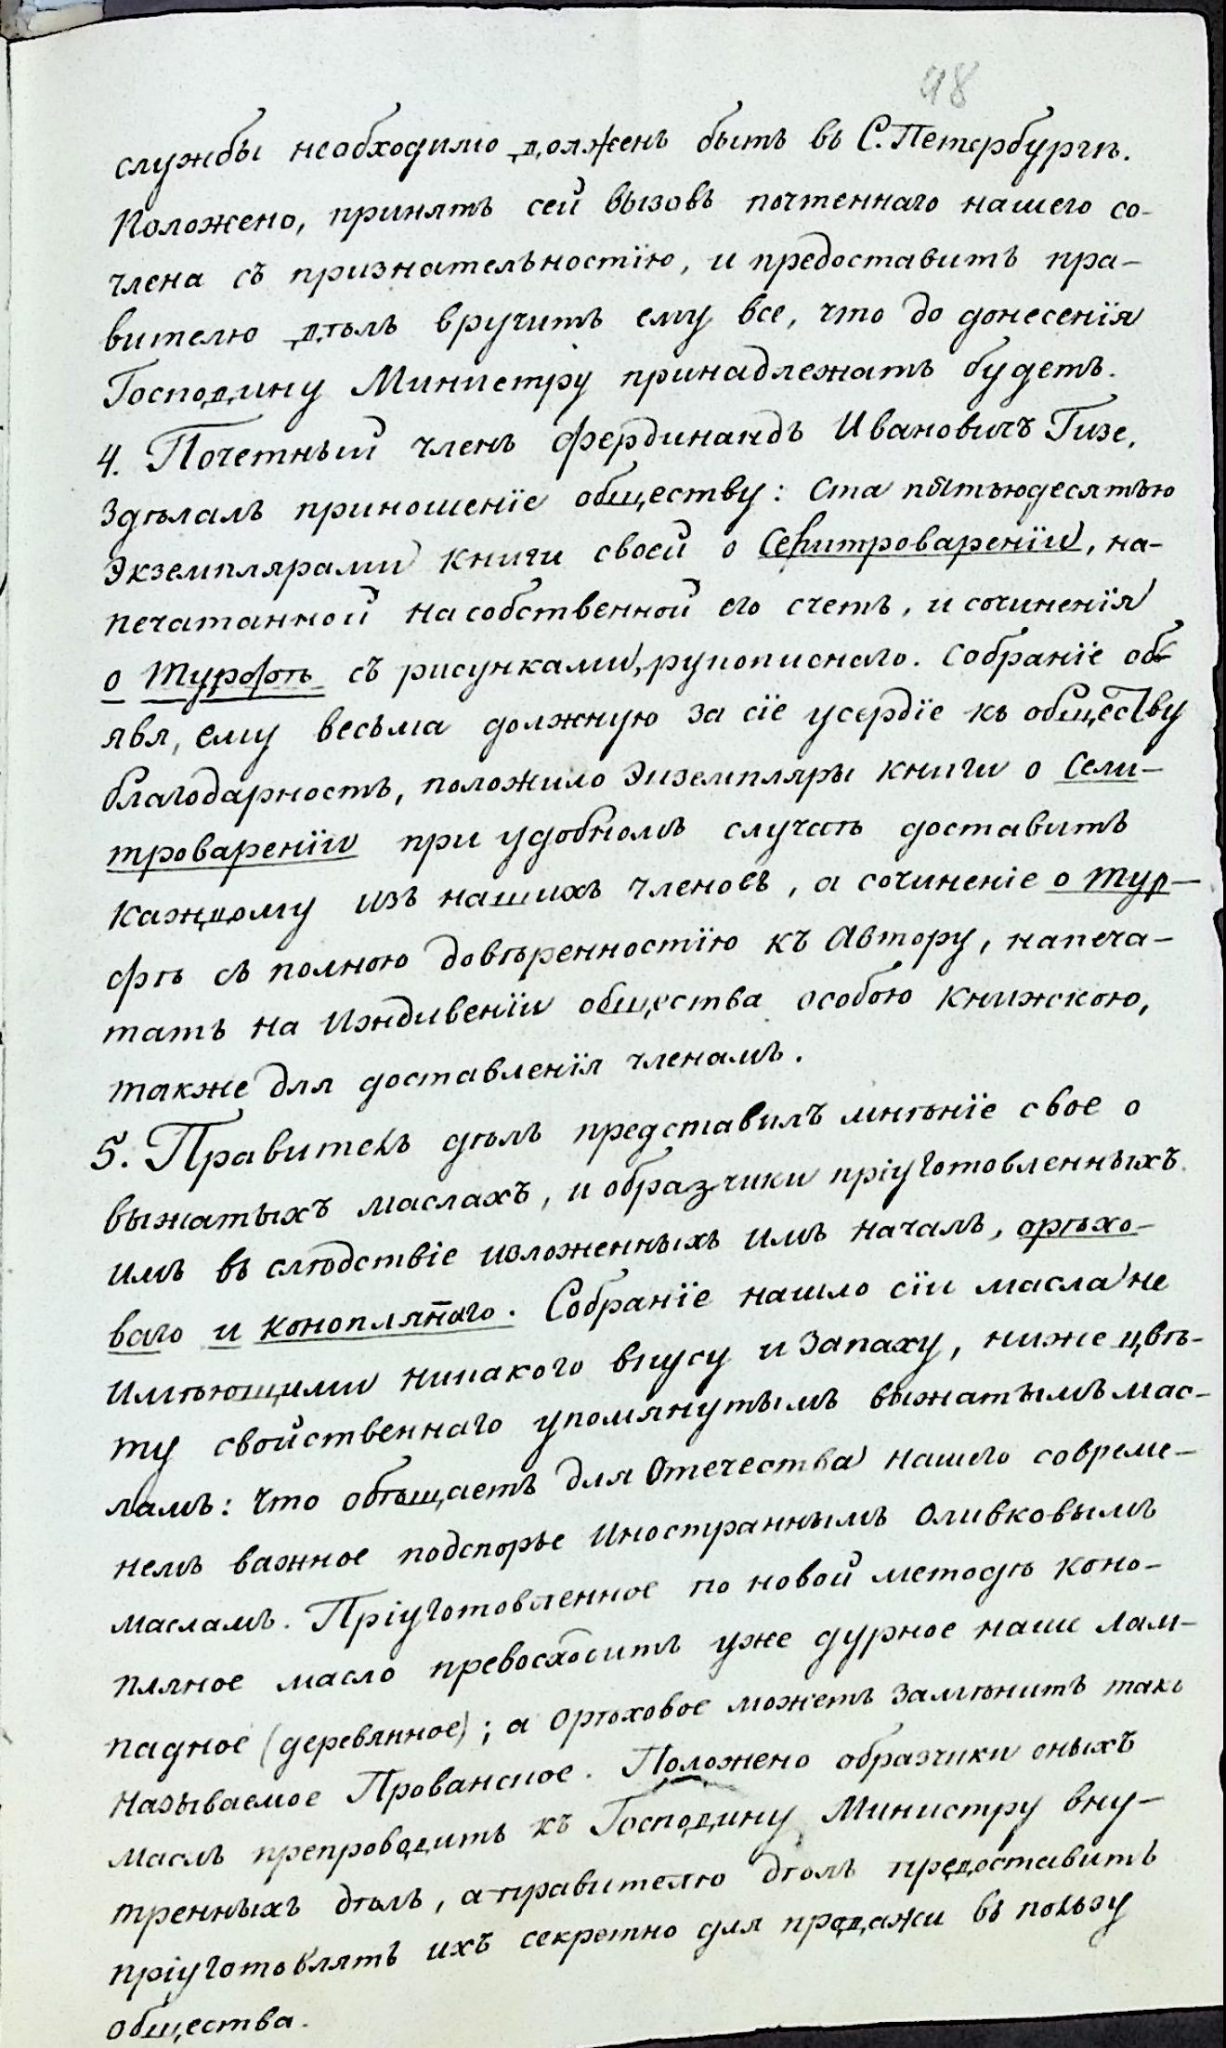 98
службы необходимо долженъ быть въ С. Петербургѣ.
Положено, принять сей вызовъ почтеннаго нашего со-
члена съ признательностїю, и предоставить пра-
вителю дѣлъ вручить ему все, что до донесенїя
Господину Министру принадлежать будетъ.
4. Почетный членъ Фердинандъ Ивановичъ Гизе,
здѣлалъ приношенїе обществу: Ста пятьюдесятью
Экземплярами книги своей о Селитроваренїи, на-
печатанной на собственной его счетъ, и сочиненїя
о турфѣ съ рисунками, рукописнаго. Собранїе объ
явя, ему весьма должную за сїе усердїе къ обществу
благодарность, положило Экземпляры книги о Сели-
троваренїи при удобномъ случаѣ доставить
каждому изъ нашихъ членовъ, а сочиненіе о тур-
фѣ съ полною довѣренностїю къ Автору, напеча-
тать на Иждивенїи общества особою книжкою,
также для доставленїя членамъ.
5. Правитель дѣлъ представилъ мнѣнїе свое о
выжатыхъ маслахъ, и образчики прїуготовленныхъ
имъ въ слѣдствіе изложенныхъ имъ началъ, орѣхо-
ваго и коноплянаго. Собранїе нашло сїи масла не
имѣющими никакого вкусу и запаху, ниже цвѣ-
ту свойственнаго упомянутымъ выжатымъ мас-
ламъ: что обѣщаетъ для Отечества нашего совреме-
немъ важное подспорье Иностраннымъ Оливковымъ
масламъ. Прїуготовленное по новой методѣ коно-
пляное масло превосходитъ уже дурное наше лам-
падное (деревянное); а Орѣховое можетъ замѣнить такъ
называемое Прованское. Положено образчики оныхъ
маслъ препроводить къ Господину Министру вну-
тренныхъ дѣлъ, а правителю дѣлъ предоставить
прїуготовлять ихъ секретно для продажи въ пользу
общества.